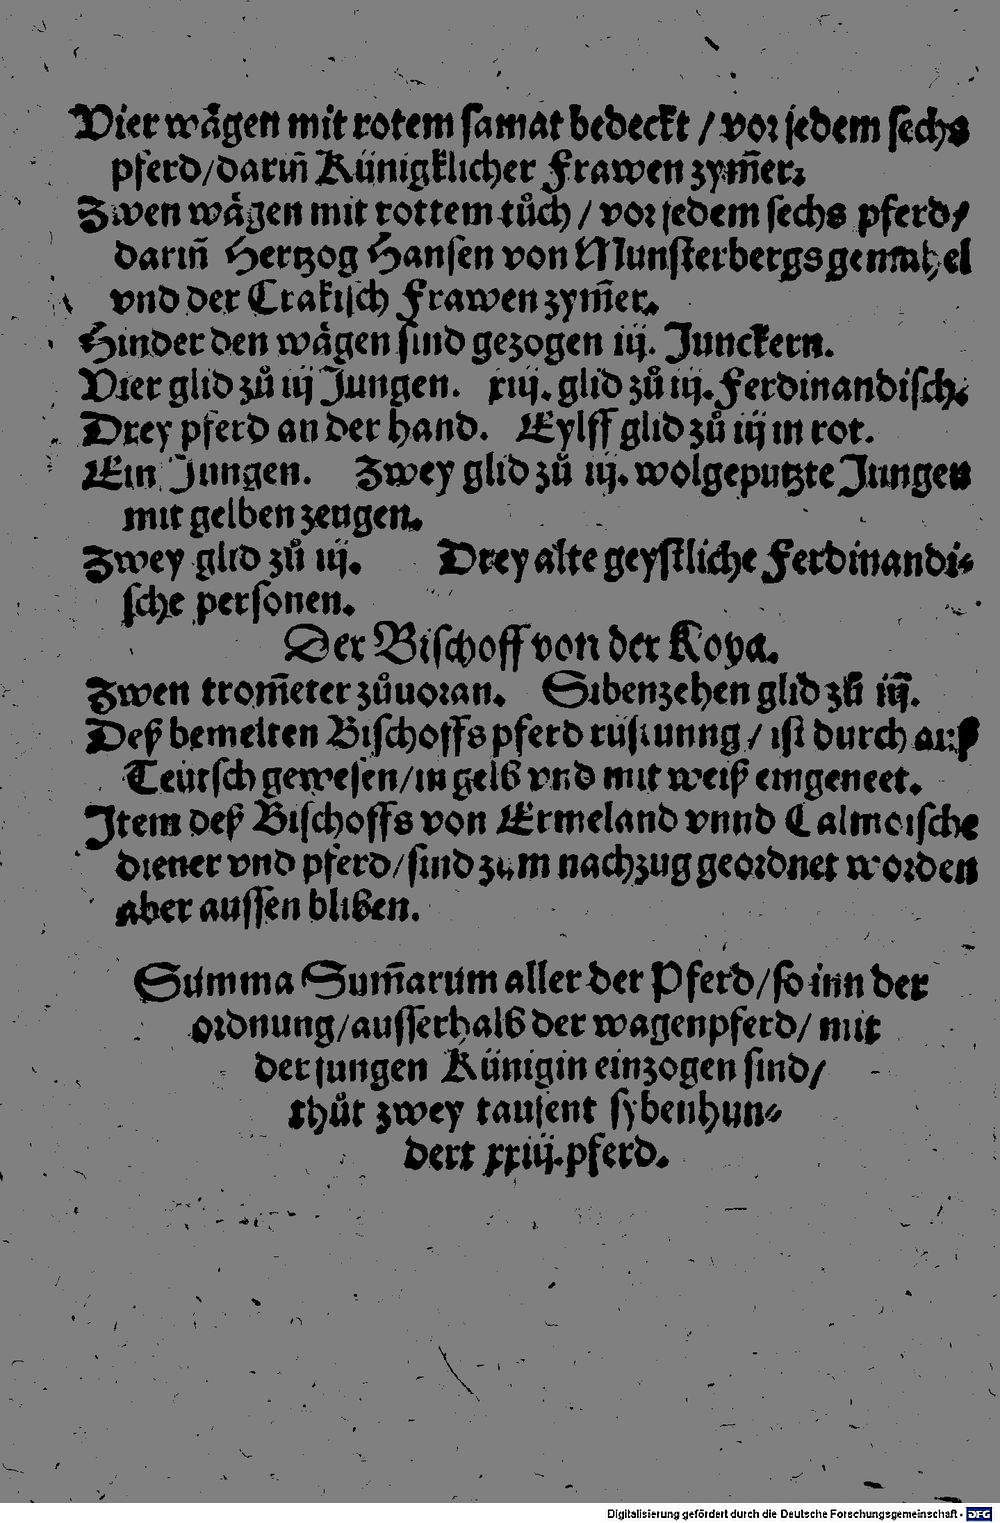 Vier wägen mit rotem samat bedeckt / vor jedem sechs
pferd/darin̄ Künigklicher Frawen zym̄er.
Zwen wägen mit rottem tůch / vor jedem sechs pferd/
darin̄ Hertzog Hansen von Munsterbergs gemahel
vnd der Crakisch Frawen zym̄er.
Hinder den wägen sind gezogen iij. Junckern.
Vier glid zů iij Jungen. xiij. glid zů iij. Ferdinandisch.
Drey pferd an der hand. Eylff glid zů iij in rot.
Ein Jungen. Zwey glid zů iij. wolgeputzte Jungen
mit gelben zeugen.
Zwey glid zů iij. Drey alte geystliche Ferdinandi⸗
sche personen.
Der Bischoff von der Koya.
Zwen trom̄eter zůuoran. Sibenzehen glid zů iij.
Deß bemelten Bischoffs pferd rüstunng / ist durch auß
Teütsch gewesen/in gelb vnd mit weiß eingeneet.
Item deß Bischoffs von Ermeland vnnd Calmoische
diener vnd pferd/sind zum nachzug geordnet worden
aber aussen bliben.
Summa Sum̄arum aller der Pferd/so inn der
ordnung/ausserhalb der wagenpferd/ mit
der jungen Künigin einzogen sind/
thůt zwey tausent sybenhun⸗
dert xxiij. pferd.
Digitalisierung gefördert durch die Deutsche Forschungsgemeinschaft - DFG